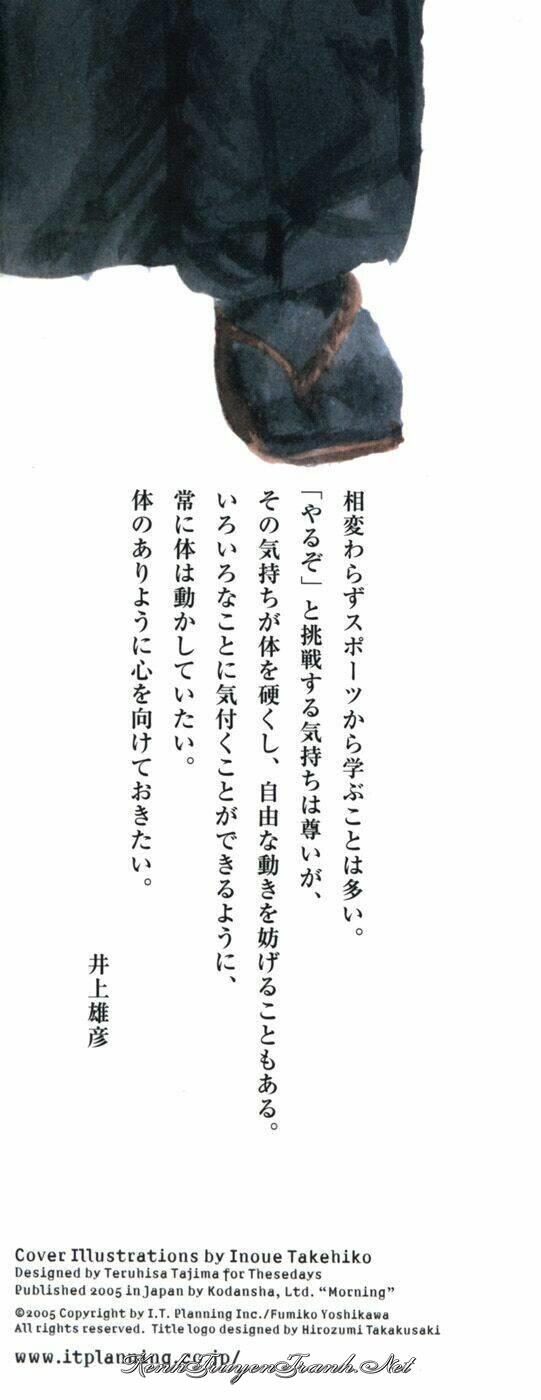 相変わらずスポーツから学ぶことは多い。
「やるぞ」と挑戦する気持ちは尊いが、
その気持ちが体を硬くし、自由な動きを妨げることもある。
いろいろなことに気付くことができるように、
常に体は動かしていたい。
体のありように心を向けておきたい。
井上雄彦
Cover Illustrations by Inoue Takehiko
Designed by Teruhisa Tajima for Thesedays
Published 2005 in Japan by Kodansha, Ltd. “Morning”
©2005 Copyright by I.T. Planning Inc./Fumiko Yoshikawa
All rights reserved. Title logo designed by Hirozumi Takakusaki
www.itplanning.co.jp/
KenhTruyenTranh.Net